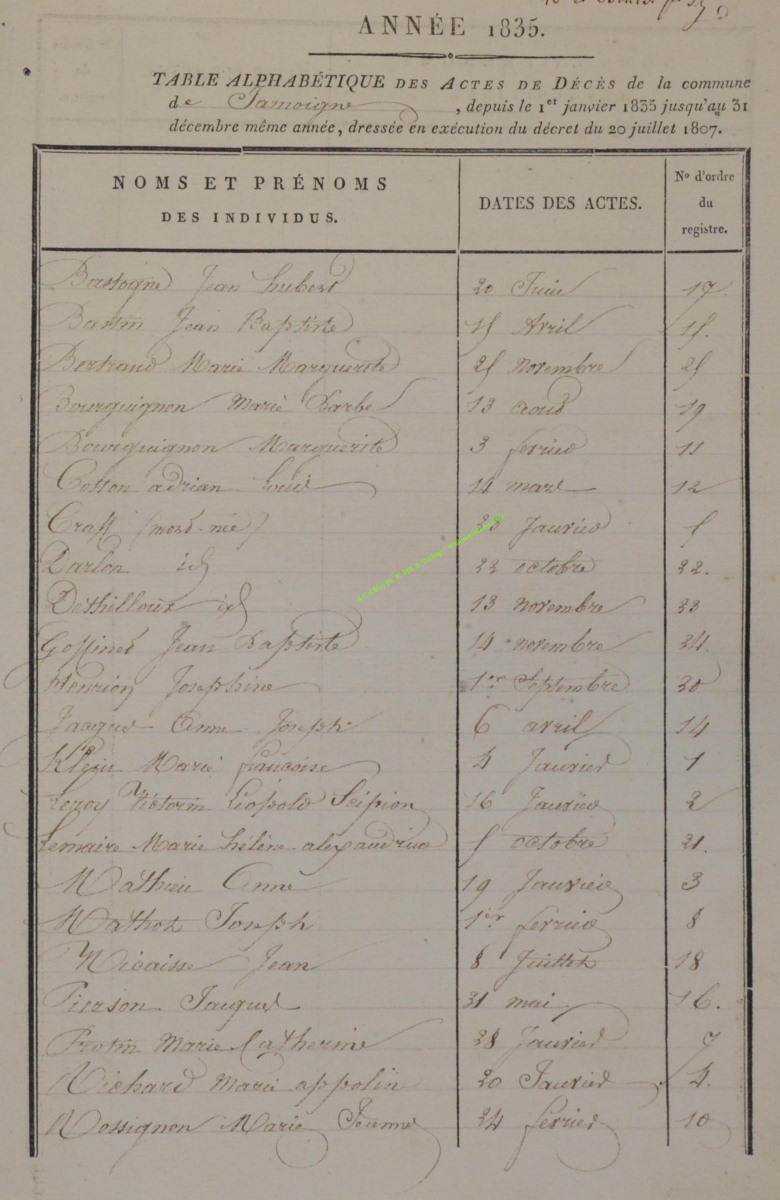 ANNÉE 1835.
TABLE ALPHABÉTIQUE DES ACTES DE DÉCÈS de la commune
de Jamoigne, depuis le 1er janvier 1835 jusqu'au 31
décembre même année, dressée en exécution du décret du 20 juillet 1807.
NOMS ET PRÉNOMS DES INDIVIDUS. DATES DES ACTES. No d'ordre du registre.
Bastogne Jean hubert 20 Juin 17.
Bastin Jean Baptiste 15 Avril 15.
Bertrand Marie Marguerite 25 novembre 25
Bourguignon Marie barbe 13 aout 19
Bourguignon Marguerite 3 fevrier 11
Cosson adrian Louis 11 mars 12
(mort-née) Janvier 5
Darlon id 22 octobre 22.
Dethilloux id 13 novembre 23
Jean Baptiste 14 novembre 24.
Henrion Josephine 1er Septembre 20
Jacques Anne Joseph 6 avril 14
Klein Marie françoise 4 Janvier 1
Leroy Victorin Léopold Scipion 16 Janvier 2
Lemaire Marie hélène alexandrine 5 octobre 21.
Mathieu Anne 19 Janvier 3
Mathot Joseph 1er fevrier 8
Nicaisse Jean 8 Juillet 18
Pierson Jacques 31 mai 16.
Protin Marie Catherine 28 Janvier 7
Richard Marie appolin 20 Janvier 4.
Rossignon Marie Jeanne 24 fevrier 10